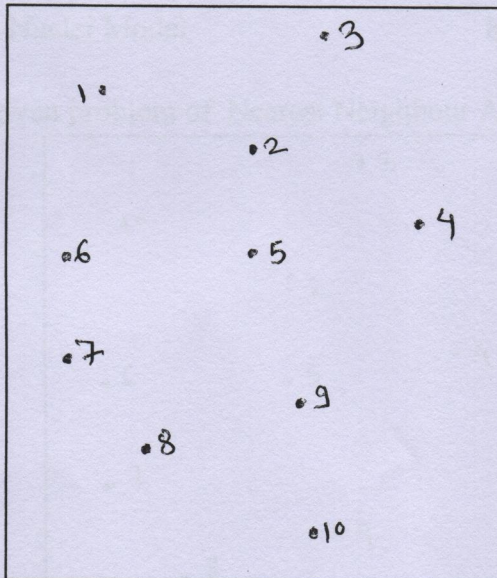 3
1
2
4
6
5
7
9
8
10